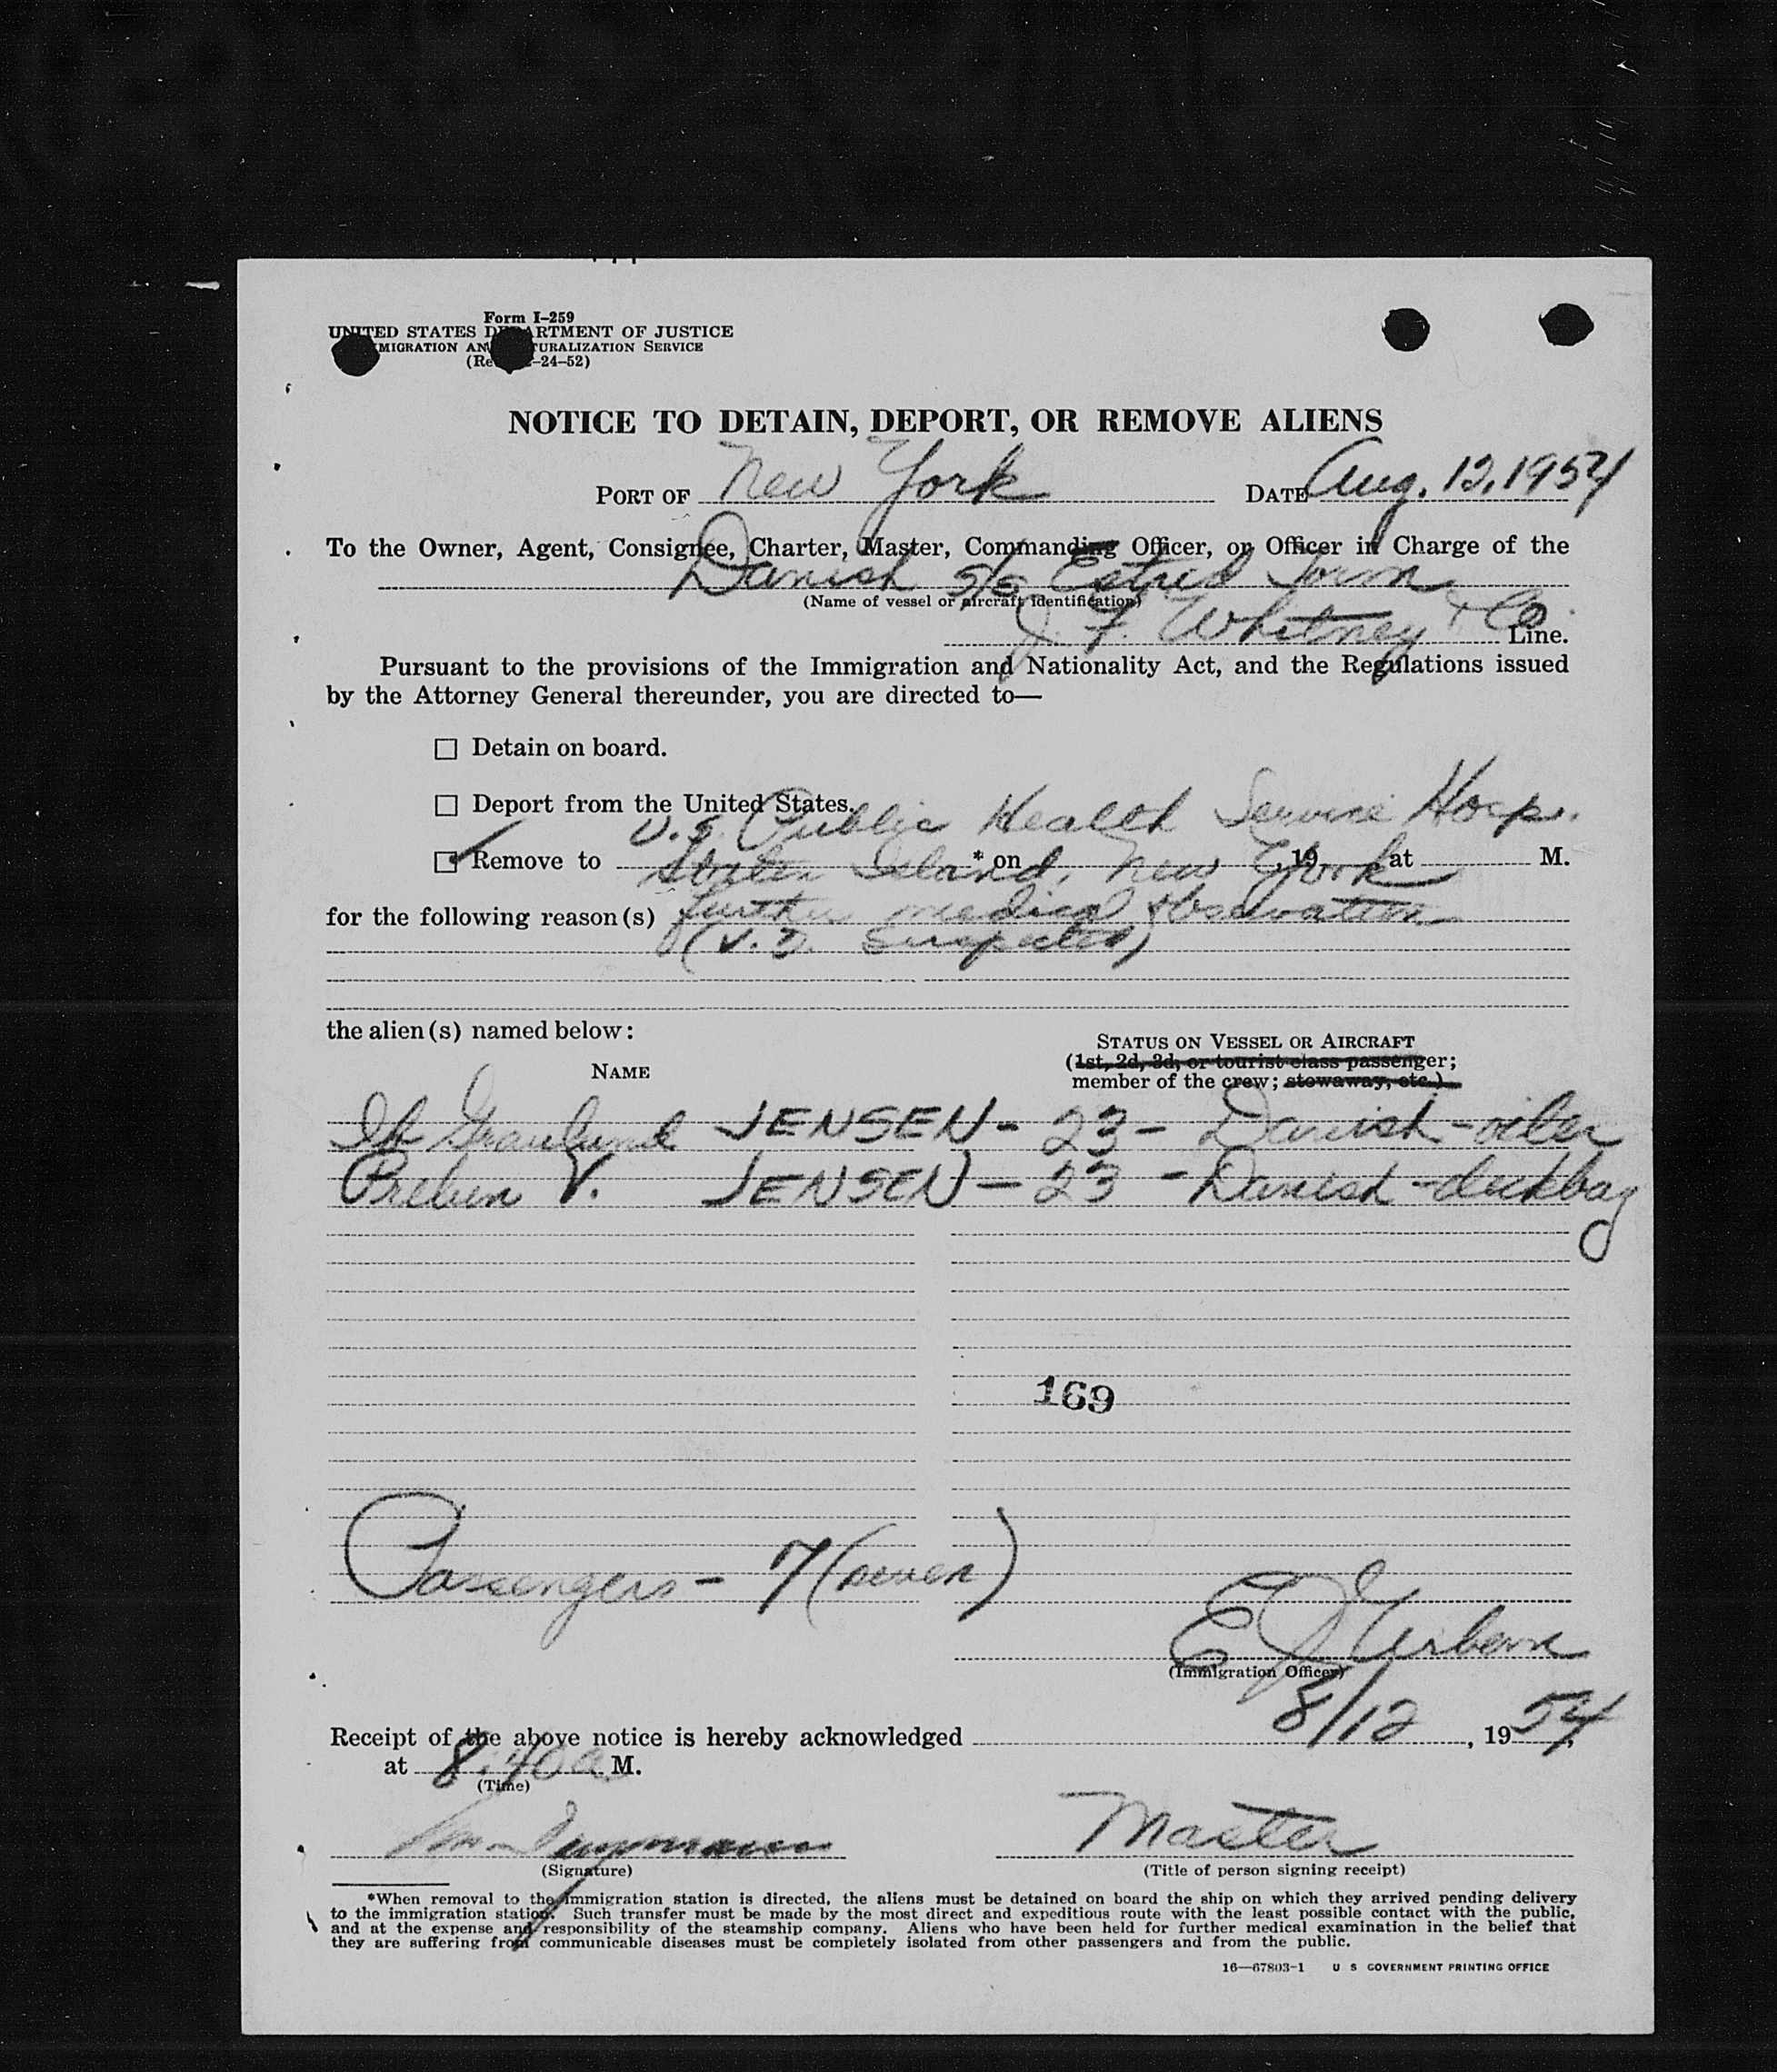 Form I-259
UNITED STATES DEPARTMENT OF JUSTICE
IMMIGRATION AND NATURALIZATION SERVICE
(Re -24-52)
NOTICE TO DETAIN, DEPORT, OR REMOVE ALIENS
PORT OF New York DATE Aug. 12, 1954
To the Owner, Agent, Consignee, Charter, Master, Commanding Officer, or Officer in Charge of the
Danish S/S Estrid Torm
(Name of vessel or aircraft identification)
J. F. Whitney & Co. Line.
Pursuant to the provisions of the Immigration and Nationality Act, and the Regulations issued
by the Attorney General thereunder, you are directed to—
☐ Detain on board.
☐ Deport from the United States.
U.S. Public Health Service Hosp.
☑ Remove to * on , 19 at M.
Staten Island, New York
for the following reason(s) further medical observation
(V.D. Suspects)
the alien(s) named below:
STATUS ON VESSEL OR AIRCRAFT
(1st, 2d, 3d, or tourist class passenger;
NAME
member of the crew; stowaway, etc.)
Ib Graulund JENSEN - 23 - Danish - oiler
Preben V. JENSEN - 23 - Danish - deckboy
169
Passengers - 7 (seven)
E J Urban
(Immigration Officer)
Receipt of the above notice is hereby acknowledged 8/12, 1954,
at 8:40 a M.
(Time)
Master
(Signature) (Title of person signing receipt)
*When removal to the immigration station is directed, the aliens must be detained on board the ship on which they arrived pending delivery
to the immigration station. Such transfer must be made by the most direct and expeditious route with the least possible contact with the public,
and at the expense and responsibility of the steamship company. Aliens who have been held for further medical examination in the belief that
they are suffering from communicable diseases must be completely isolated from other passengers and from the public.
16—67803-1 U S GOVERNMENT PRINTING OFFICE